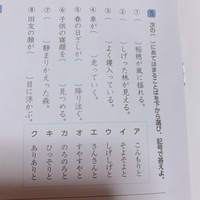 5 次の( )にあてはまることばを下から選び、記号で答えよ。
① ( )稲穂が風に揺れる。
② ( )しげった林が見える。
③ ( )よく寝入っている。
④ 車が( )走っていく。
⑤ 春の日ざしが( )降り注ぐ。
⑥ 子供の寝顔を( )見つめる。
⑦ ( )静まりかえった森。
⑧ 旧友の顔が( )目に浮かぶ。
ア こんもりと
イ そよそよと
ウ しげしげと
エ さんさんと
オ すやすやと
カ のろのろと
キ ひっそりと
ク ありありと